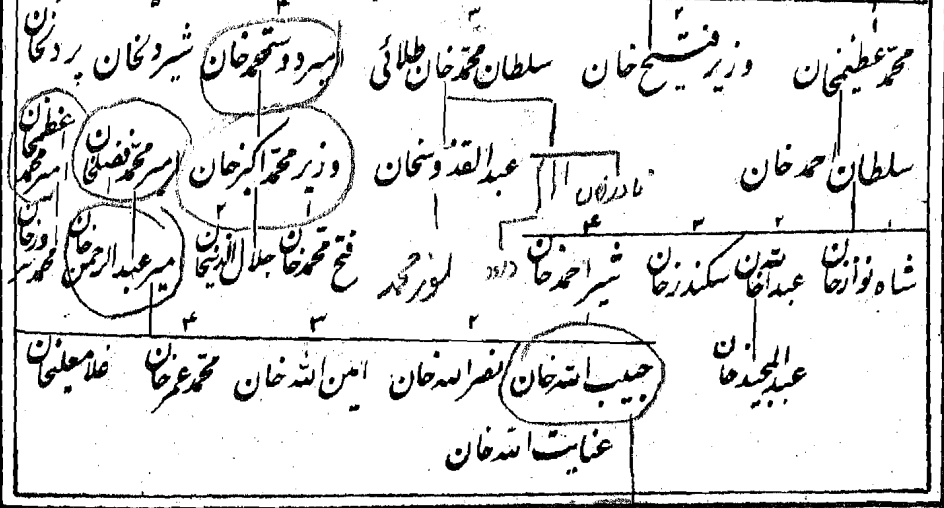 محمد عظیمخان وزیر فتح خان سلطان محمد خان طلائی امیر دوستمحمد خان شیردلخان پردلخان
سلطان احمد خان عبدالقدوسخان وزیر محمد اکبر خان امیر محمد افضلخان امیر محمد اعظمخان
شاه نواز خان عبدالله خان سکندر خان شیر احمد خان داود نور محمد فتح محمد خان جلال الدینخان امیر عبدالرحمن خان
عبدالمجید خان حبیب الله خان نصرالله خان امین الله خان محمد عمر خان غلامعلیخان
عنایت الله خان